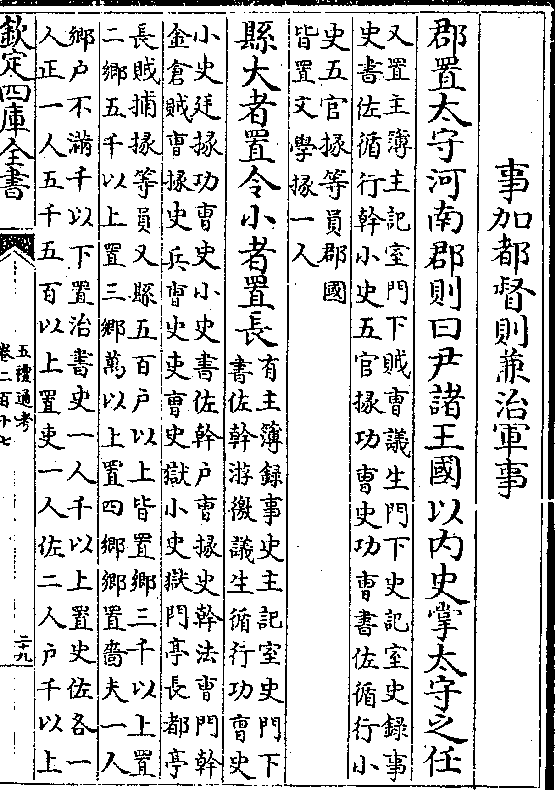 事加都督則兼治軍事
郡置太守河南郡則曰尹諸王國以内史掌太守之任
又置主簿主記室門下賊曹議生門下史記室史録事
史書佐循行幹小史五官掾功曹史功曹書佐循行小
史五官掾等員郡國
皆置文學掾一人
縣大者置令小者置長
有主簿録事史主記室史門下
書佐幹游徼議生循行功曹史
小史廷掾功曹史小史書佐幹户曹掾史幹法曹門幹
金倉賊曹掾史兵曹史吏曹史獄小史獄門亭長都亭
長賊捕掾等員又縣五百户以上皆置鄉三千以上置
二鄉五千以上置三鄉萬以上置四鄉鄉置嗇夫一人
鄉户不滿千以下置治書史一人千以上置史佐各一
人正一人五千五百以上置吏一人佐二人户千以上
欽定四庫全書
五禮通考
卷二百十七
二十九